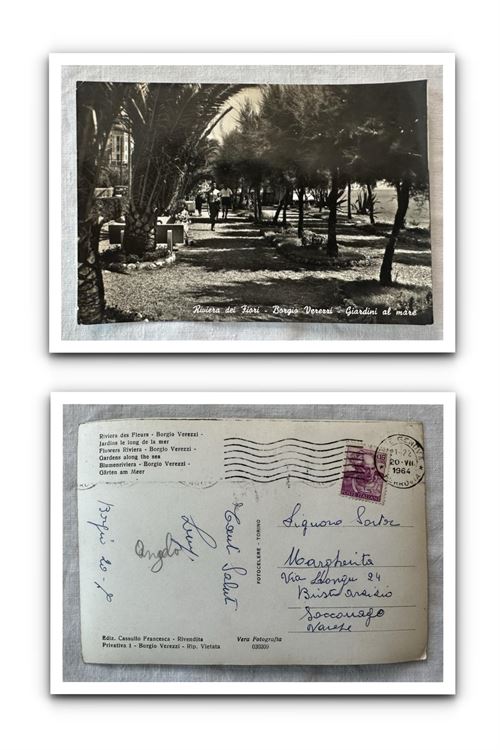 Riviera dei Fiori - Borgio Verezzi - Giardini al mare
Riviera des Fleurs - Borgio Verezzi -
Jardins le long de la mer
Flowers Riviera - Borgio Verezzi -
Gardens along the sea
Blumenriviera - Borgio Verezzi -
Gärten am Meer
20-VII
1964
POSTE ITALIANE
Borgio 20-7
Angelo
Luigi
Tanti Saluti
FOTOCELERE - TORINO
Signora
Margherita
Via 24
Busto Arsizio
Sacconago
Varese
Ediz. Cassullo Francesca - Rivendita
Privativa 1 - Borgio Verezzi - Rip. Vietata
Vera Fotografia